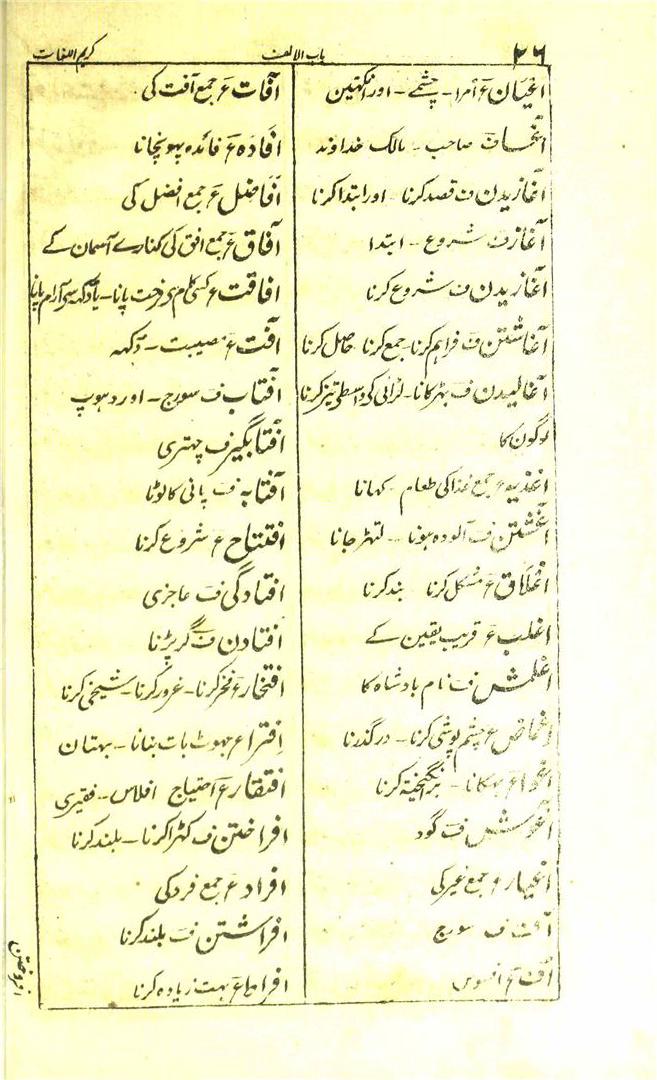 ۲۶ باب الالف کریم اللغات
اعیان ع اُمرا - چشمے - اور آنکھین
صاحب - مالک خداوند
آغازیدن ف قصد کرنا - اور ابتدا کرنا
آغاز ف شروع - ابتدا
آغازیدن ف شروع کرنا
آغاشتن ف فراہم کرنا - جمع کرنا حاصل کرنا
آغالیدن ف بھڑکانا - لڑائی کی واسطی تیز کرنا
لوگون کا
اغذیہ ع جمع غذا کی طعام - کھانا
آغشتن ف آلودہ ہونا - لتھڑ جانا
اغلاق ع مشکل کرنا بند کرنا
اغلب ع قریب یقین کے
اغلمش ف نام بادشاہ کا
اغماض ع چشم پوشی کرنا - درگذرنا
اغوا ع بہکانا - برانگیختہ کرنا
آغوش ف گود
اغیار ع جمع غیر کی
ف سورج
اُف ع افسوس
آفات ع جمع آفت کی
افادہ ع فائدہ پہونچانا
افاضل ع جمع افضل کی
آفاق ع جمع افق کی کنارے آسمان کے
افاقت ع کسی کام سی فرصت پانا - یا دکھہ سی آرام پانا
آفت ع مصیبت - دکھہ
آفتاب ف سورج - اور دھوپ
آفتابگیر ف چھتری
آفتابہ ف پانی کا لوٹا
افتتاح ع شروع کرنا
افتادگی ف عاجزی
افتادن ف گر پڑنا
افتخار ع فخر کرنا - غرور کرنا - شیخی کرنا
افترا ع جھوٹ بات بنانا - بہتان
افتقار ع احتیاج افلاس - فقیری
افراختن ف کھڑا کرنا - بلند کرنا
افراد ع جمع فرد کی
افراشتن ف بلند کرنا
افراط ع بہت زیادہ کرنا
افروختن